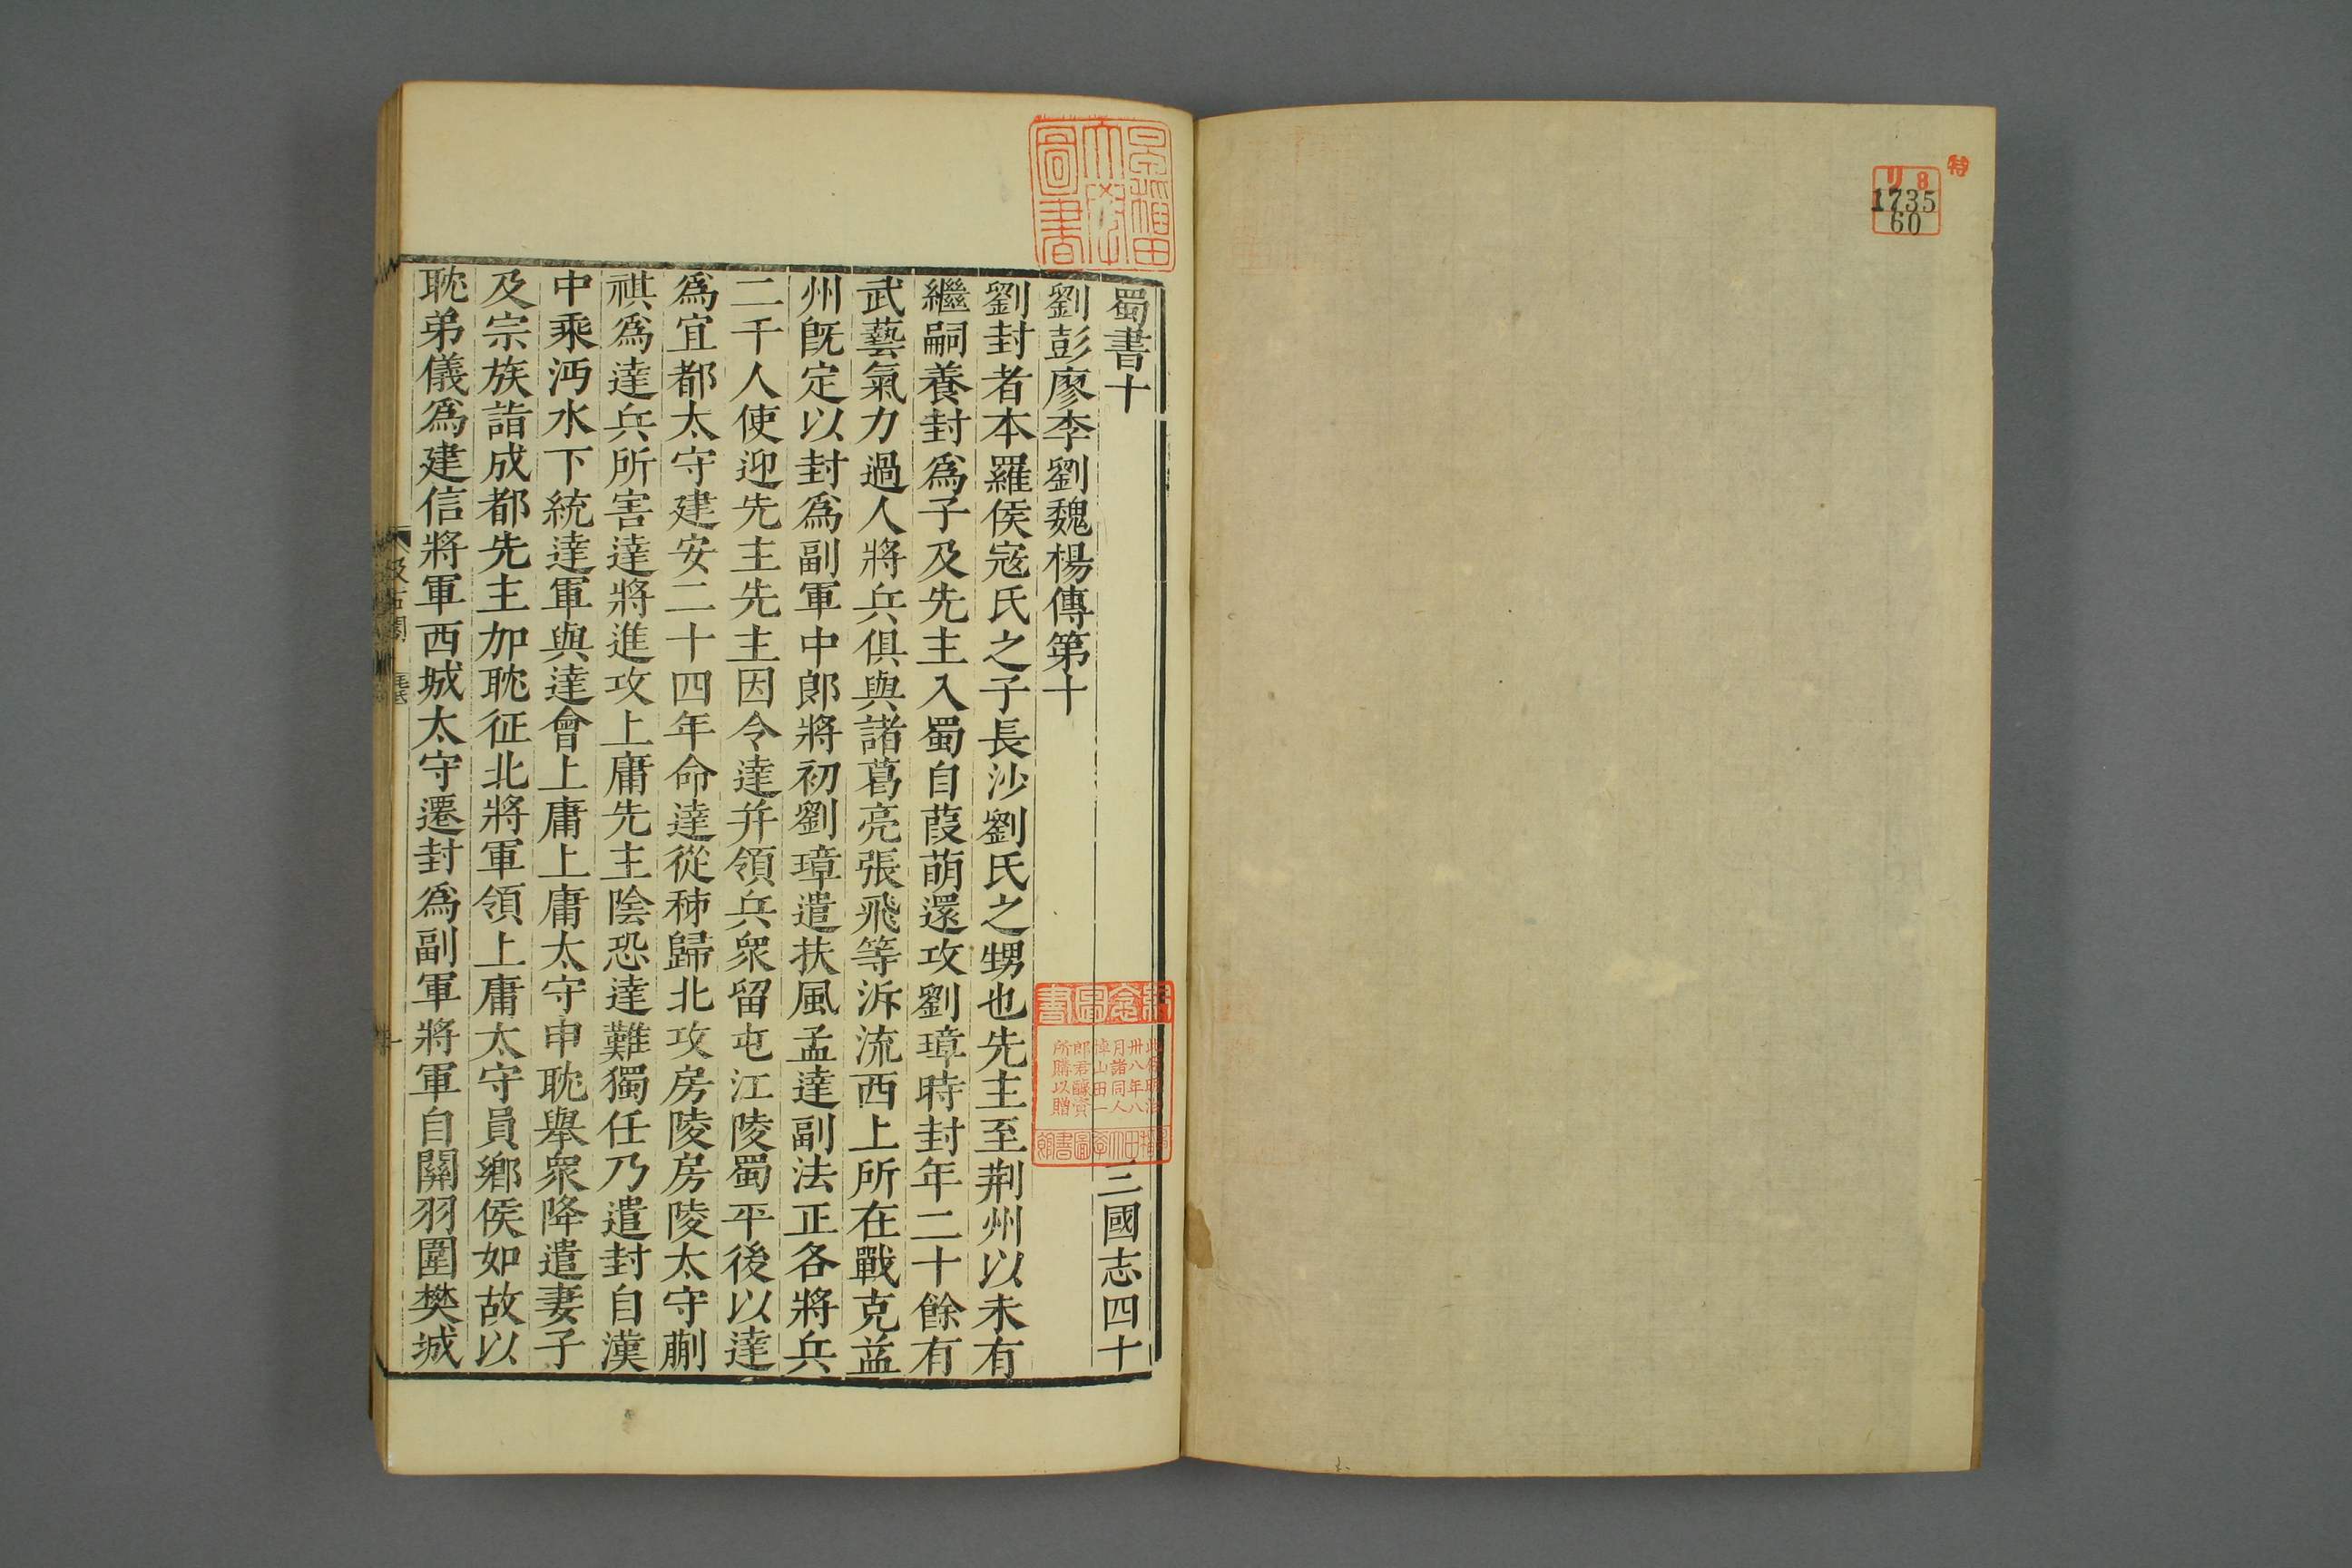 特
リ 8
1735
60
早稲田大學圖書
蜀書十 三國志四十
劉彭廖李劉魏楊傳第十
劉封者本羅侯宼氏之子長沙劉氏之甥也先主至荆州以未有
繼嗣養封爲子及先主入蜀自葭萌還攻劉璋時封年二十餘有
武藝氣力過人將兵俱與諸葛亮張飛等泝流西上所在戰克益
州旣定以封爲副軍中郎將初劉璋遣扶風孟達副法正各將兵
二千人使迎先主先主因令達并領兵衆留屯江陵蜀平後以達
爲宜都太守建安二十四年命達從秭歸北攻房陵房陵太守蒯
祺爲達兵所害達將進攻上庸先主陰恐達難獨任乃遣封自漢
中乘沔水下統達軍與達會上庸上庸太守申耽舉衆降遣妻子
及宗族詣成都先主加耽征北將軍領上庸太守員鄉侯如故以
耽弟儀爲建信將軍西城太守遷封爲副軍將軍自關羽圍樊城
卅八年八
月諸同人
悼山田一
郎君醵資
所購以贈